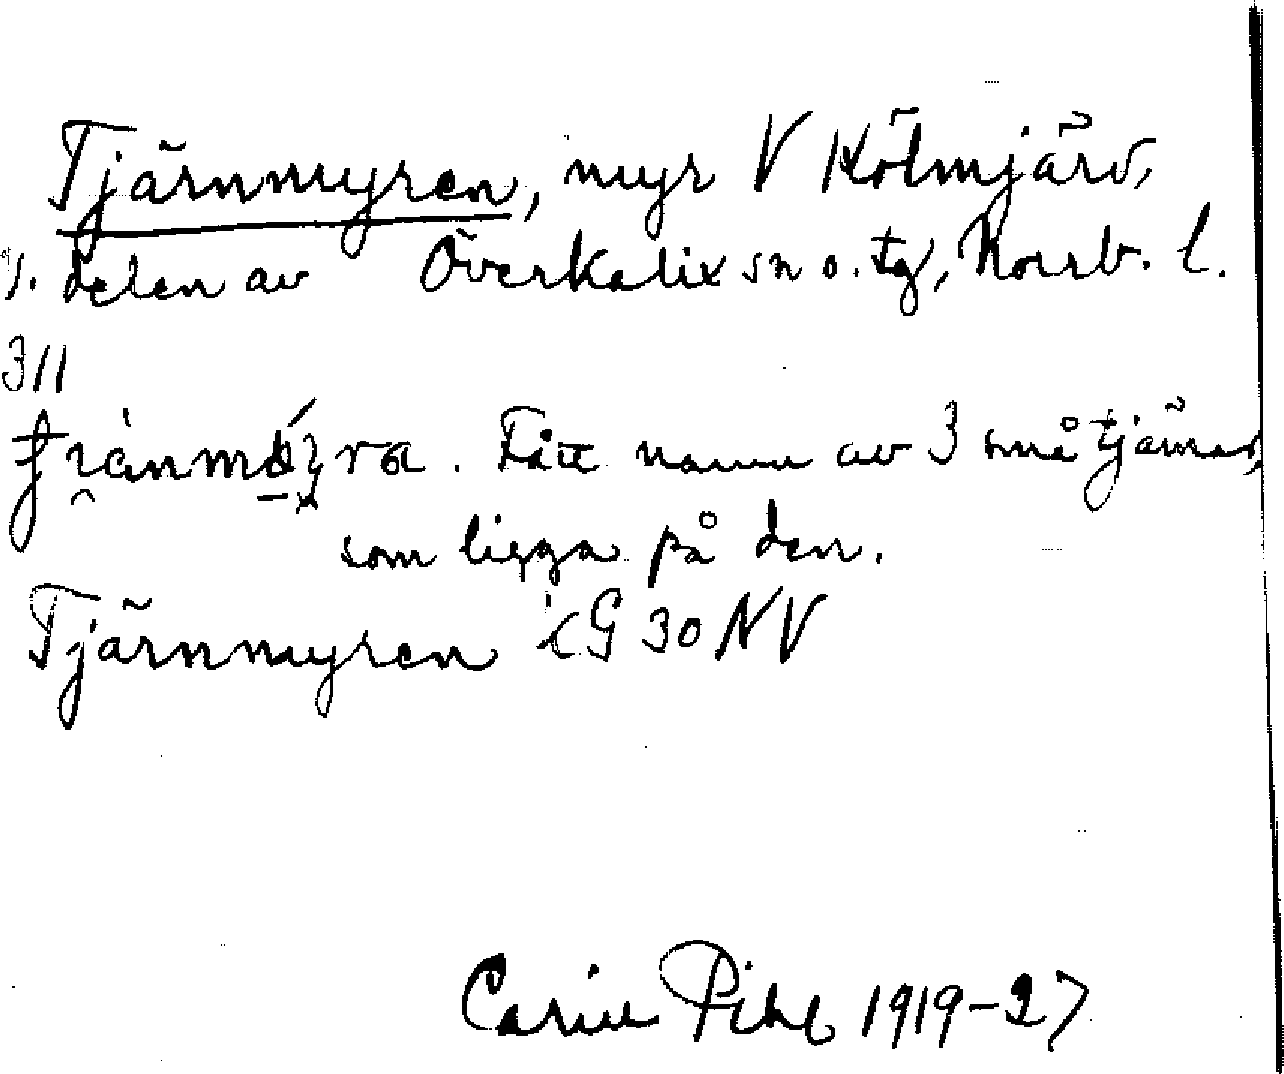 Tjärnmyren, myr V Kölmjärv,
delen av Överkalix sn o. tg, Norrb. l.
311
Fått namn av 3 små tjärnar,
som ligga på den.
Tjärnmyren i G 30 NV
Carin Pihl 1919-27